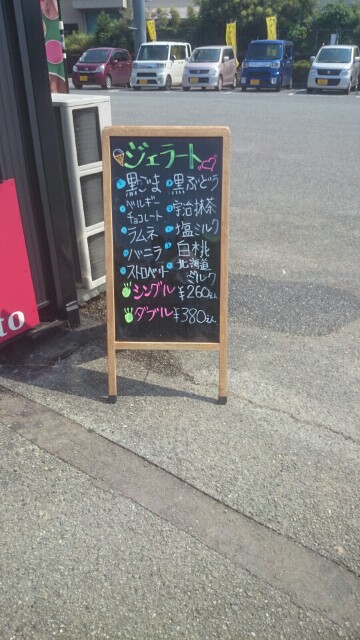 ジェラート
黒ごま 黒ぶどう
ベルギーチョコレート 宇治抹茶
ラムネ 塩ミルク
バニラ 白桃
ストロベリー 北海道ミルク
シングル ¥260
ダブル ¥380
to